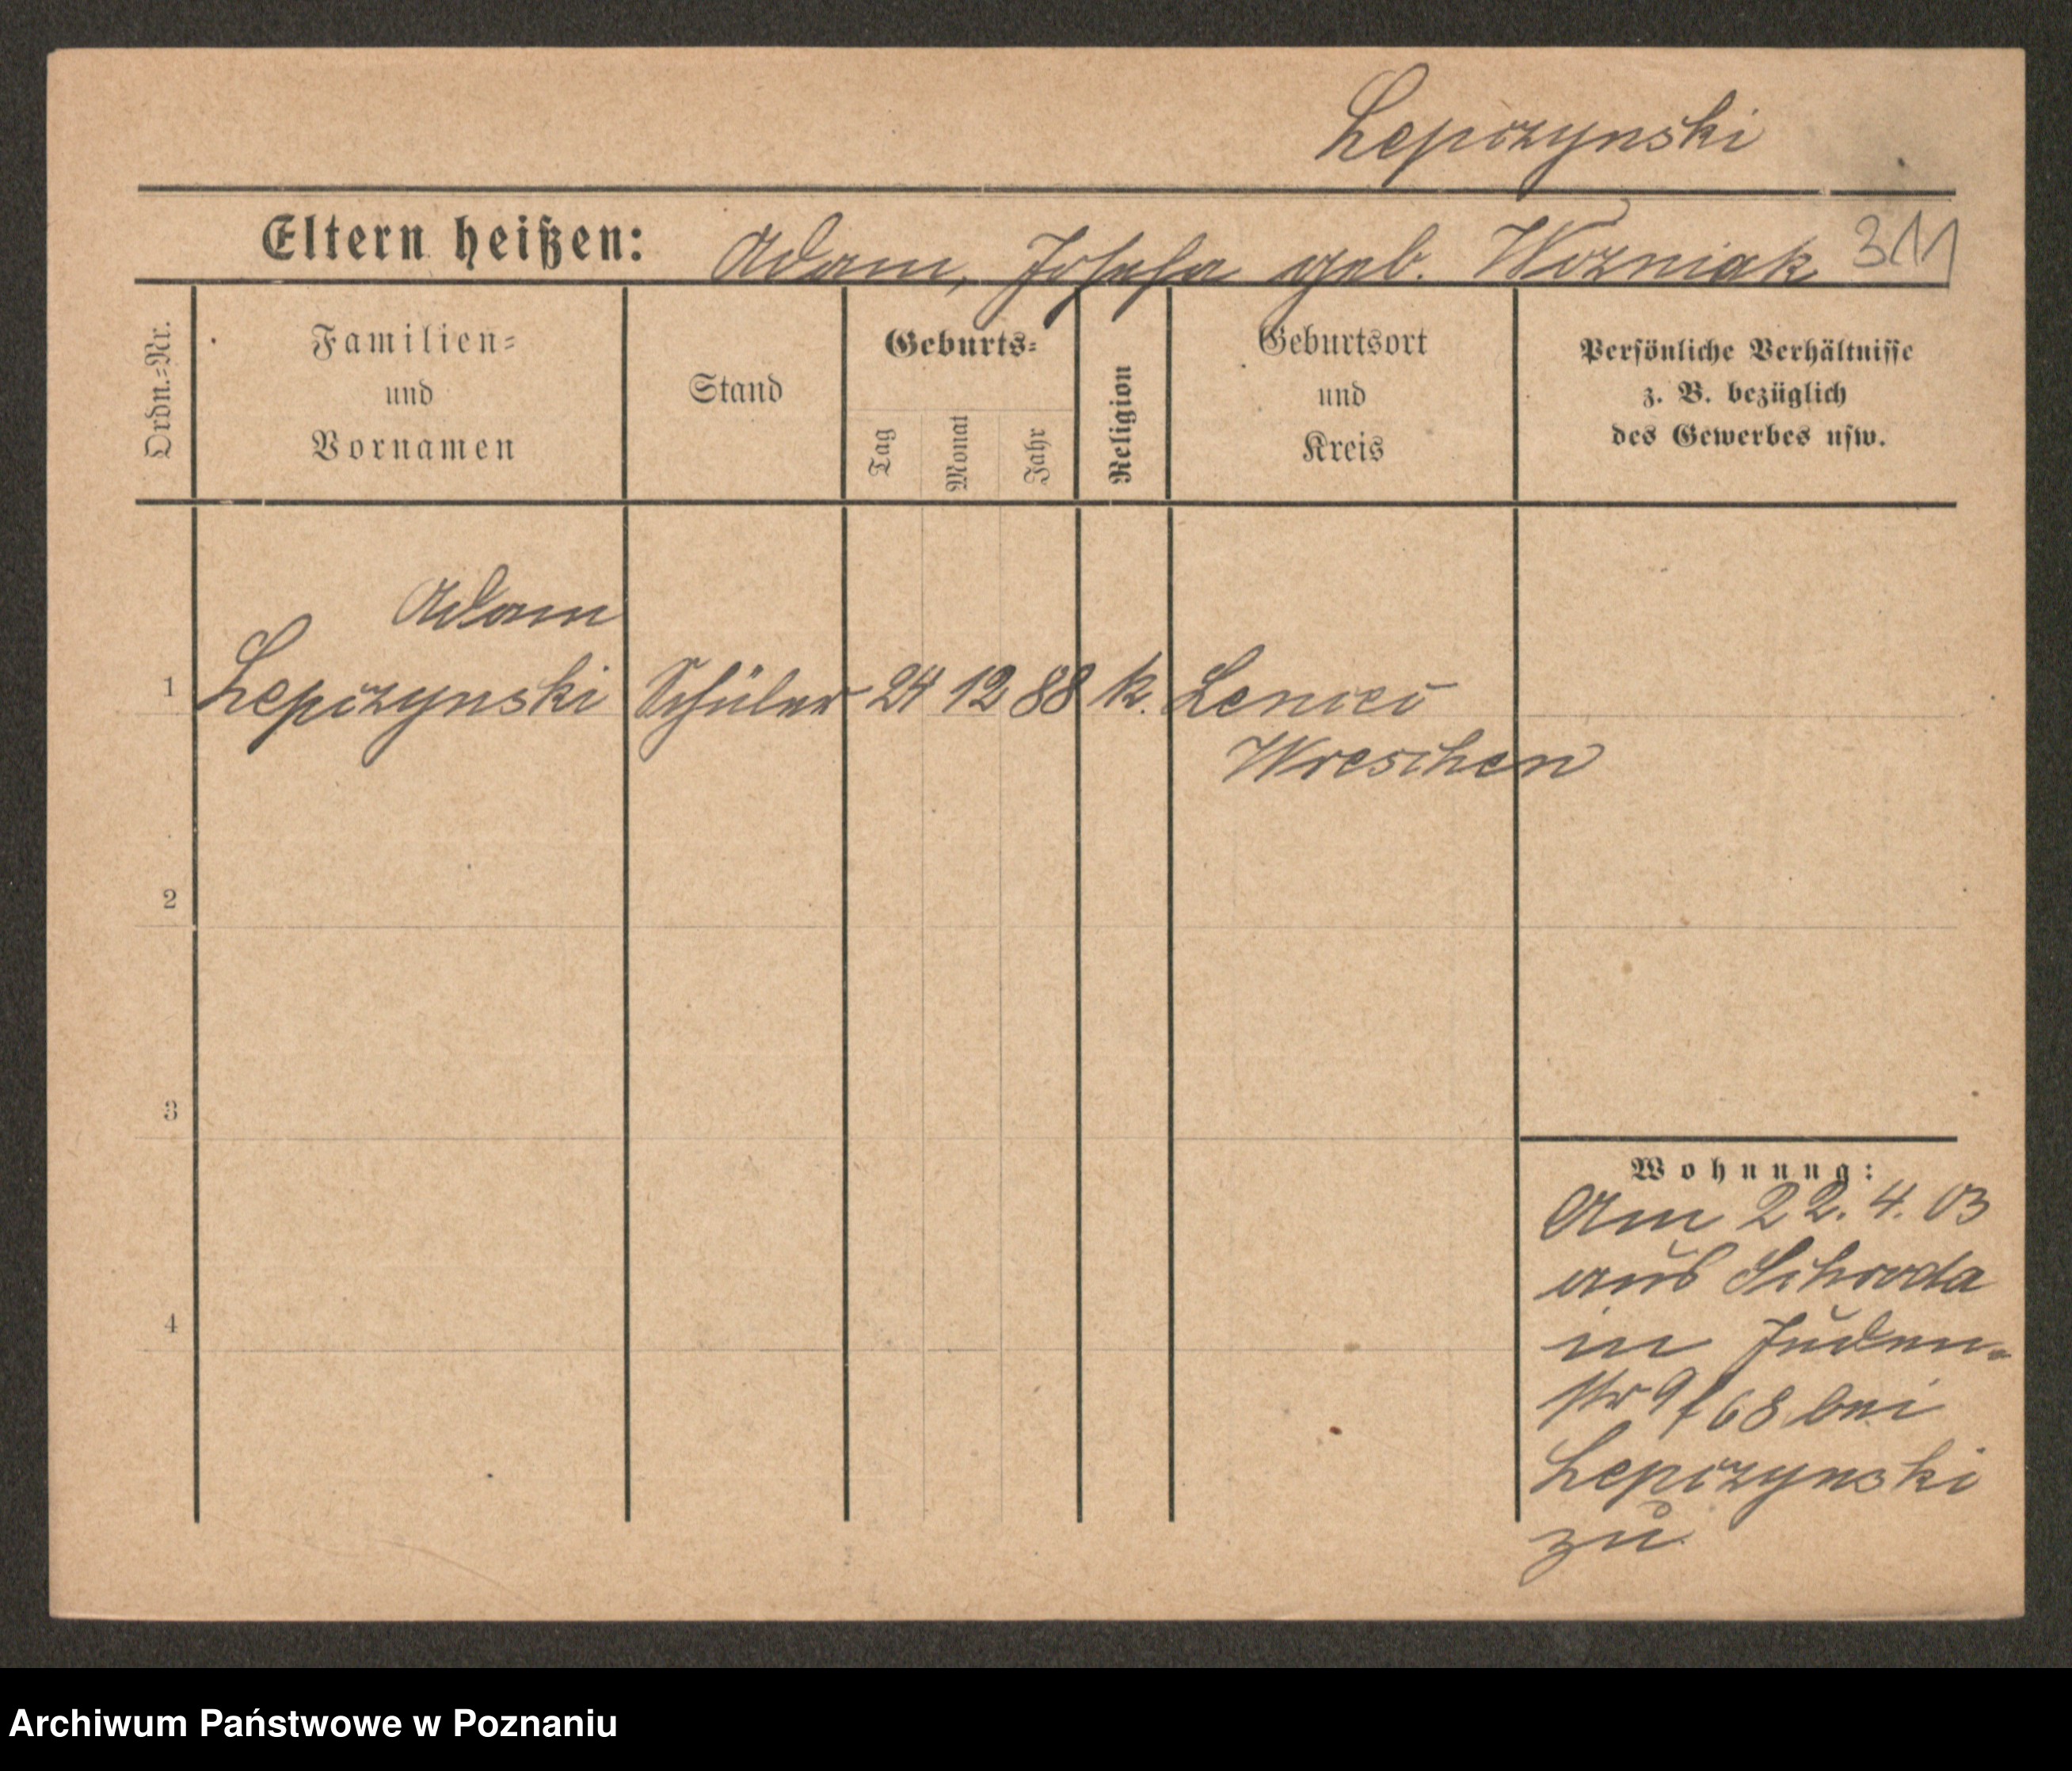 Lepczynski
Eltern heißen: Adam, Josefa geb. Wozniak 311
Ordn.=Nr.
Familien=
und
Vornamen
Stand
Geburts=
Tag
Monat
Jahr
Religion
Geburtsort
und
Kreis
Persönliche Verhältnisse
z. B. bezüglich
des Gewerbes usw.
Adam
1 Lepczynski Schüler 24 12 88 k.
Wreschen
2
3
4
Wohnung:
Am 22. 4. 03
aus Schroda
in Juden-
str 9/68 bei
Lepczynski
zu
Archiwum Państwowe w Poznaniu